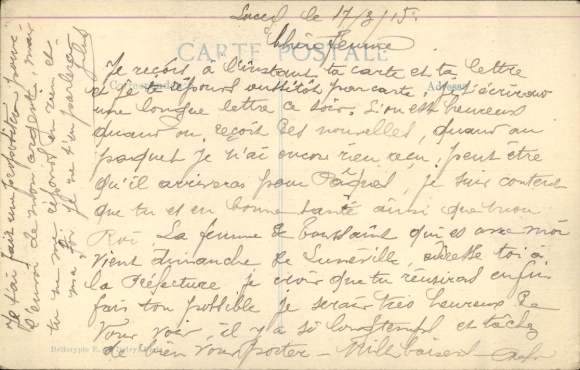 le 17/3/15.
CARTE POSTALE
Chère femme
Je reçois à l'instant ta carte et ta lettre
et je te réponds aussitôt par carte, je t'écrirai
une longue lettre ce soir. L'on est heureux
quand on reçoit des nouvelles, quand au
paquet je n'ai encore rien reçu, peut être
qu'il arriveras pour Pâques, je suis content
que tu es en bonne santé ainsi que mon
Roi. La femme de Toussaint qui es avec moi
vient dimanche de Lunéville, adresse toi à
la Préfecture, je crois que tu réussiras enfin
fais ton possible je serais très heureux de
vous voir, il y a si longtemps et tâchez
de bien vous porter - Mille baisers -
Correspondance
Adresse
Héliotypie E.
Je t'ai fais une proposition pour
d'envoi de mon argent, mais
tu ne me réponds en rien et
ma foi je ne t'en parlerai
plus